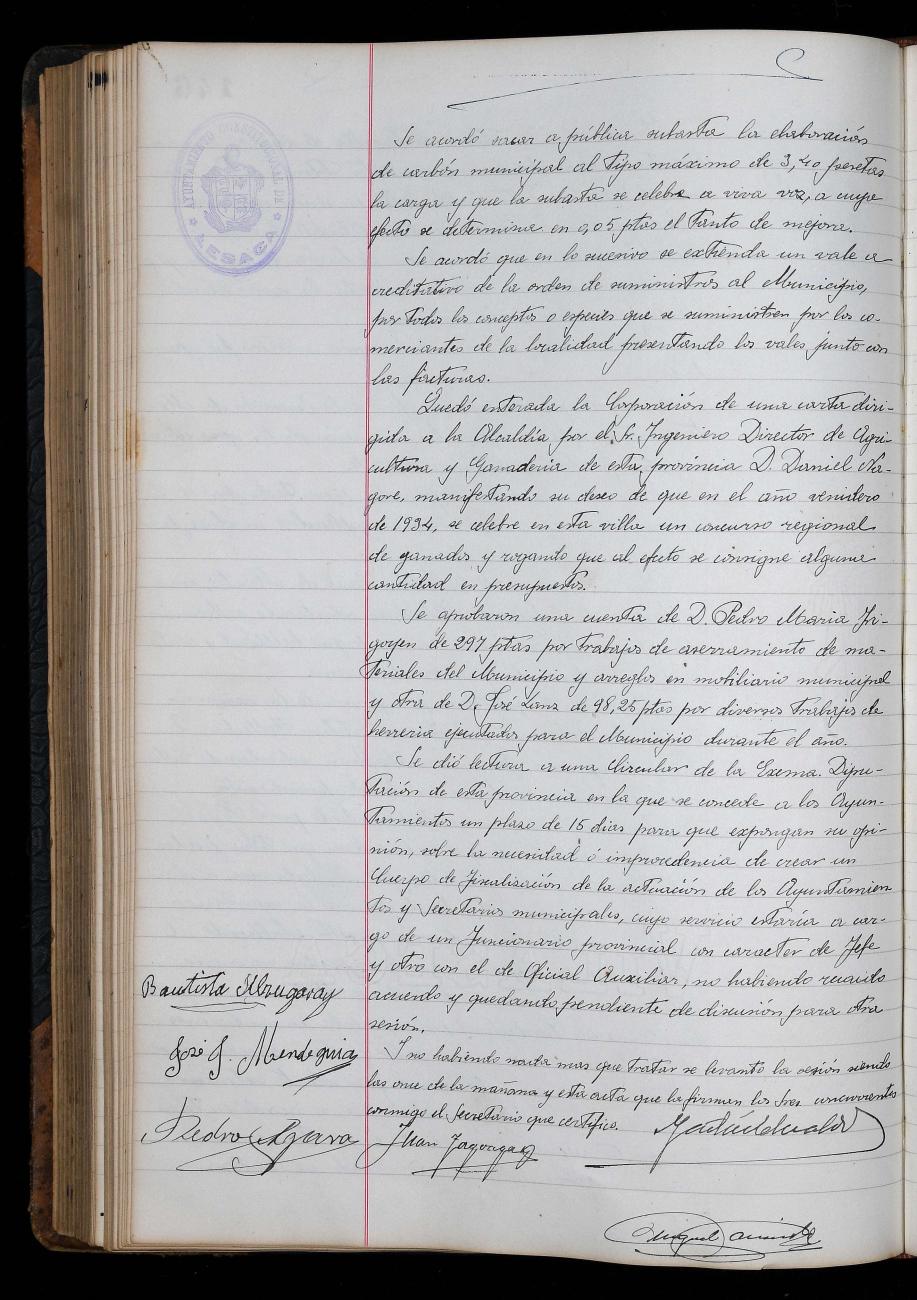 AYUNTAMIENTO CONSTITUCIONAL DE
LESACA
Se acordó sacar a pública subasta la elaboración
de carbón municipal al tipo máximo de 3,40 pesetas
la carga y que la subasta se celebre a viva voz, a cuyo
efecto se determina en 0,05 ptas el tanto de mejora.
Se acordó que en lo sucesivo se extienda un vale a
creditativo de la orden de suministros al Municipio,
por todos los conceptos o especies que se suministren por los co-
merciantes de la localidad presentando los vales junto con
las facturas.
Quedó enterada la Corporación de una carta diri-
gida a la Alcaldía por el Sr. Ingeniero Director de Agri-
cultura y Ganadería de esta provincia D. Daniel Na-
gore, manifestando su deseo de que en el año venidero
de 1934, se celebre en esta villa un concurso regional
de ganados y rogando que al efecto se consigne alguna
cantidad en presupuestos.
Se aprobaron una cuenta de D. Pedro Maria Iri-
goyen de 297 ptas por trabajos de aserramiento de ma-
teriales del Municipio y arreglos en mobiliario municipal
y otra de D. José Lanz de 98,25 ptas por diversos trabajos de
herreria ejecutados para el Municipio durante el año.
Se dió lectura a una Circular de la Excma. Dipu-
tación de esta provincia en la que se concede a los Ayun-
tamientos un plazo de 15 dias para que expongan su opi-
nión, sobre la necesidad ó improcedencia de crear un
Cuerpo de Fiscalización de la actuación de los Ayuntamien
tos y Secretarios municipales, cuyo servicio estaría a car-
go de un funcionario provincial con caracter de Jefe
y otro con el de Oficial Auxiliar, no habiendo recaido
acuerdo y quedando pendiente de discusión para otra
sesión.
Y no habiendo nada mas que tratar se levantó la sesión siendo
las once de la mañana y esta acta que la firman los Sres. concurrentes
conmigo el Secretario que certifico.
Bautista
José J. Mendeguia
Pedro
Juan
Miguel